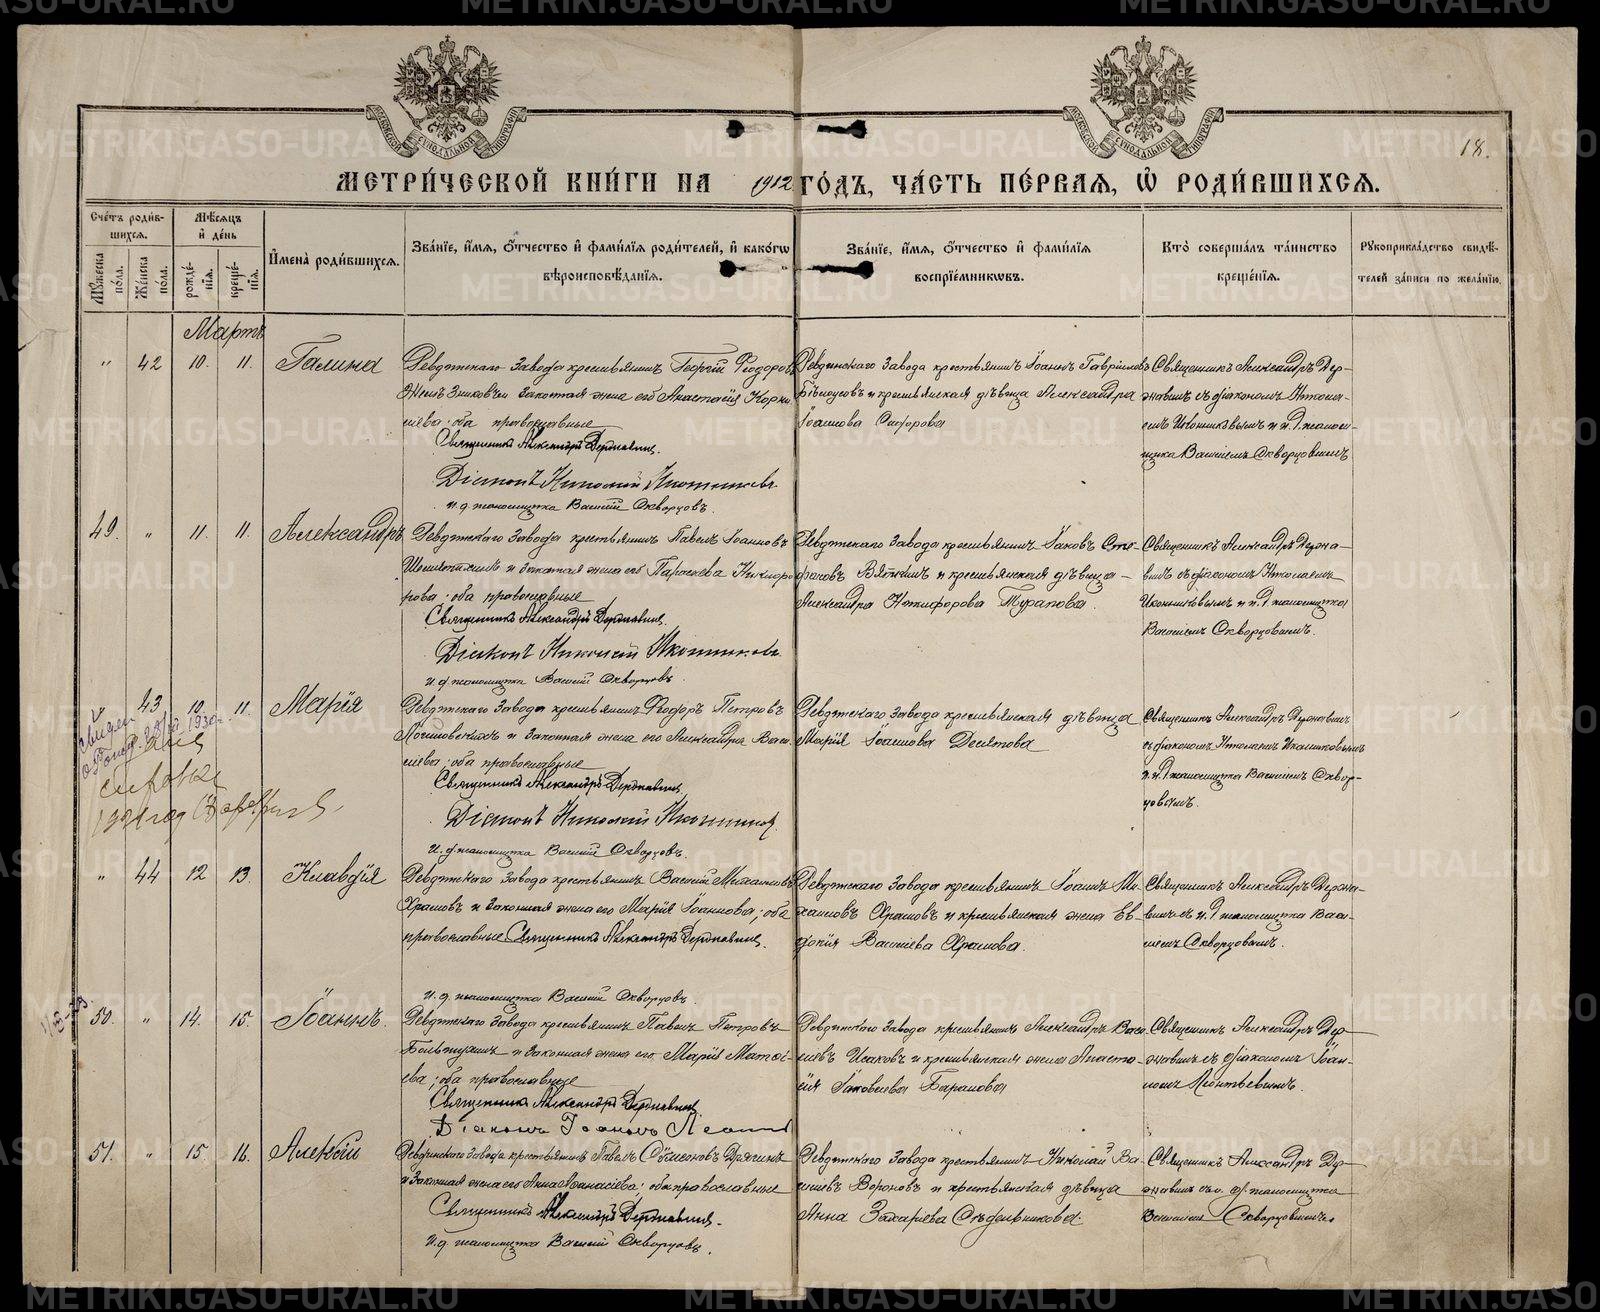 18.
МЕТРИ́ЧЕСКОЙ КНИ́ГИ НА 1912 ГО́ДЪ, ЧА́СТЬ ПЕ́РВАЯ, Ѿ РОДИ́ВШИХСЯ.
Сче́тъ роди́в-
шихся.
Му́жеска по́ла.
Же́нска по́ла.
Мѣ́сяцъ и҆ де́нь
рожде́-
нїя.
креще́-
нїя.
И҆мена̀ роди́вшихся.
Зва́нїе, и҆́мя, ѻ҆́тчество и҆ фами́лїя роди́телей, и҆ како́гѡ
вѣроисповѣ́данїя.
Зва́нїе, и҆́мя, ѻ҆́тчество и҆ фами́лїя
воспрїе́мниковъ.
Кто̀ соверша́лъ та́инство
креще́нїя.
Рукоприкла́дство свидѣ́-
телей за́писи по жела́нїю.
Мартъ
" 42 10. 11. Галина
Ревдинскаго Завода крестьянинъ Георгій Ѳеодоровъ
законная жена его Анастасія Корни-
лієва; оба православные
Священникъ Александръ Державинъ.
Діаконъ Николай Иконниковъ.
и. д. псаломщика Василій Скворцовъ.
Ревдинскаго Завода крестьянинъ Іоаннъ Гавріиловъ
Бѣлоусовъ и крестьянская дѣвица Александра
Іоаннова
Священникъ Александръ Дер-
жавинъ съ діакономъ Никола-
емъ Иконниковымъ и и. д. псалом-
щика Василіемъ Скворцовымъ
49. " 11. 11. Александръ
Ревдинскаго Завода крестьянинъ Павелъ Іоанновъ
и законная жена его Параскева Никифо-
рова; оба православные
Священникъ Александръ Державинъ.
Діаконъ Николай Иконниковъ.
и. д. псаломщика Василій Скворцовъ.
Ревдинскаго Завода крестьянинъ Іаковъ Сте-
фановъ Вяткинъ и крестьянская дѣвица
Александра Никифорова
Священникъ Александръ Держа-
винъ съ діакономъ Николаемъ
Иконниковымъ и и. д. псаломщика
Василіемъ Скворцовымъ.
" 43 10. 11. Марія
Ревдинскаго Завода крестьянинъ Ѳеодоръ Петровъ
и законная жена его Александра Васи-
лієва; оба православные
Священникъ Александръ Державинъ.
Діаконъ Николай Иконниковъ.
и. д. псаломщика Василій Скворцовъ.
Ревдинскаго Завода крестьянская дѣвица
Марія Іоаннова Десятова
Священникъ Александръ Державинъ
съ діакономъ Николаемъ Иконниковымъ
и и. д. псаломщика Василіемъ Сквор-
цовымъ.
" 44 12 13. Клавдія
Ревдинскаго Завода крестьянинъ Василій Михаиловъ
Храмовъ и законная жена его Марія Іоаннова; оба
православные Священникъ Александръ Державинъ.
и. д. псаломщика Василій Скворцовъ.
Ревдинскаго Завода крестьянинъ Іоаннъ Ми-
хаиловъ Храмовъ и крестьянская жена Ев-
докія Василіева Храмова.
Священникъ Александръ Держа-
винъ съ и. д. псаломщика Васи-
ліемъ Скворцовымъ.
50. " 14. 15. Іоаннъ.
Ревдинскаго Завода крестьянинъ Павелъ Петровъ
и законная жена его Марія Матѳі-
ева; оба православные
Священникъ Александръ Державинъ.
Діаконъ Іоаннъ
Ревдинскаго Завода крестьянинъ Александръ Васи-
ліевъ Исаковъ и крестьянская жена Анаста-
сія Іаковлева Баранова
Священникъ Александръ Дер-
жавинъ съ діакономъ Іоан-
номъ Леонтьевымъ.
51. " 15. 16. Алексій
Ревдинскаго Завода крестьянинъ Павелъ Сѵмеоновъ
и законная жена его Анна Аѳанасіева; оба православные
Священникъ Александръ Державинъ.
и. д. псаломщика Василій Скворцовъ.
Ревдинскаго Завода крестьянинъ Николай Ва-
силіевъ Вороновъ и крестьянская дѣвица
Анна Захаріева
Священникъ Александръ Дер-
жавинъ съ и. д. псаломщика
Василіемъ Скворцовымъ.
METRIKI.GASO-URAL.RU